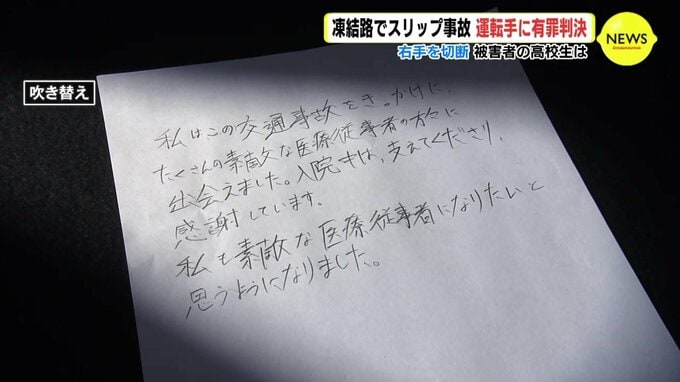 凍結路でスリップ事故 運転手に有罪判決
右手を切断 被害者の高校生は
NEWS
吹き替え
私はこの交通事故をきっかけに、
たくさんの素敵な医療従事者の方々に
出会えました。入院中は、支えてくださり、
感謝しています。
私も素敵な医療従事者になりたいと
思うようになりました。